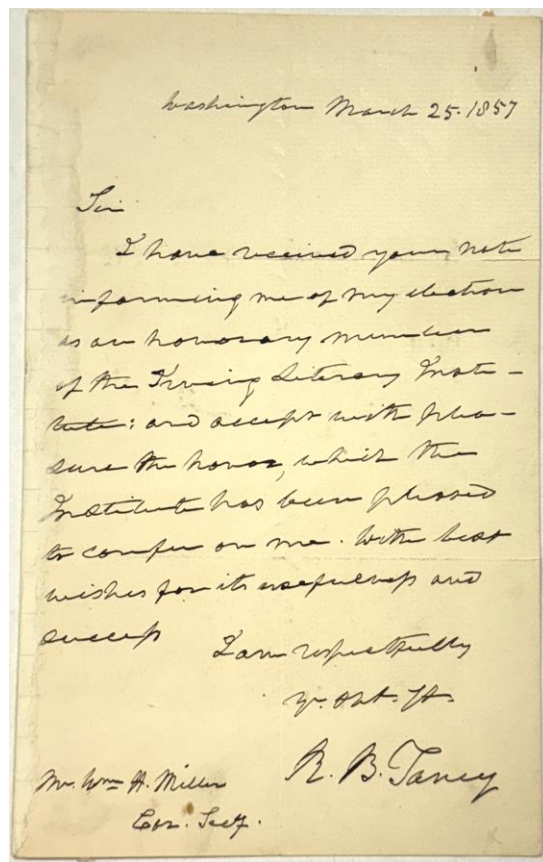 Washington March 25. 1857
Sir
I have received your note
informing me of my election
as an honorary member
of the Irving Literary Insti-
tute: and accept with plea-
sure the honor, which the
Institute has been pleased
to confer on me. With best
wishes for its usefulness and
success
I am respectfully
yr. obt. st.
R. B. Taney
Mr. Wm H. Miller
Cor. Secy.